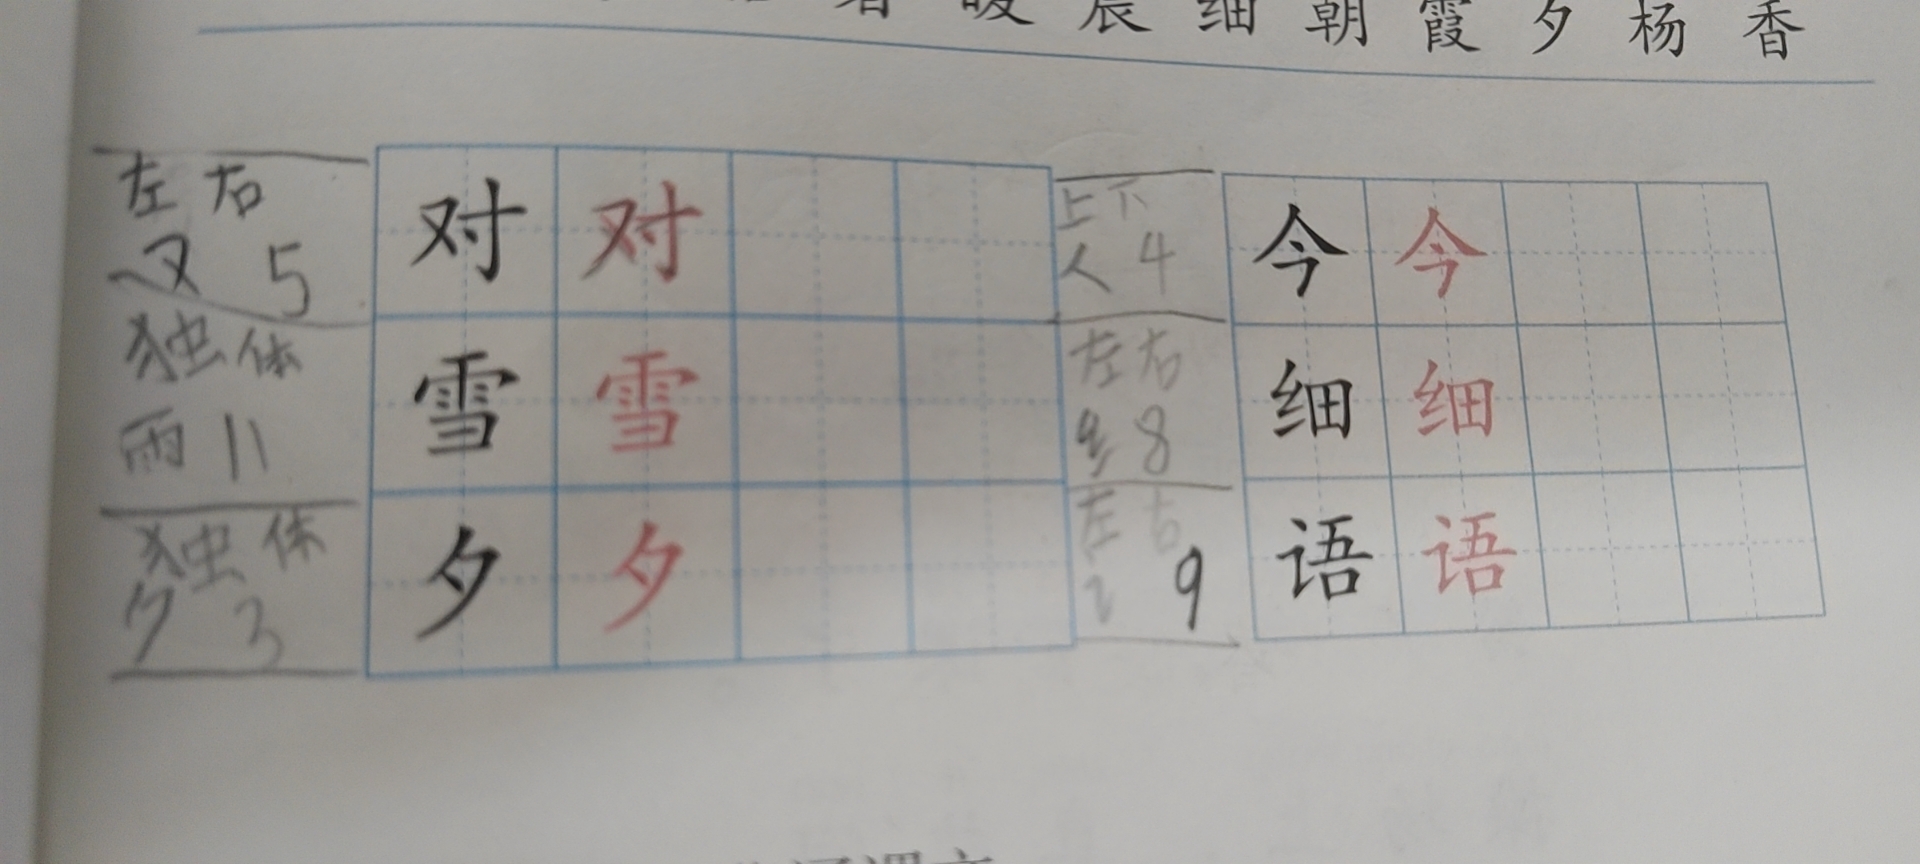 暖 晨 细 朝 霞 夕 杨 香
左右
又 5
对 对
上下
人 4
今 今
独体
雨 11
雪 雪
左右
纟 8
细 细
独体
夕 3
夕 夕
左右
讠 9
语 语